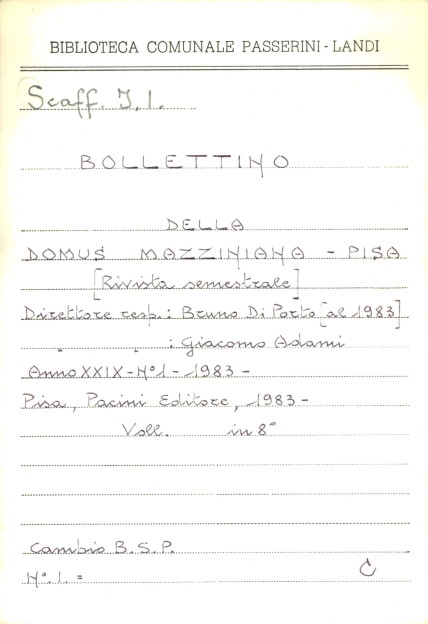 BIBLIOTECA COMUNALE PASSERINI - LANDI
Scaff. J. 1.
BOLLETTINO
DELLA
DOMUS MAZZINIANA - PISA
[Rivista semestrale]
Direttore resp.: Bruno Di Porto [al 1983]
" " : Giacomo Adami
Anno XXIX - N° 1 - 1983 -
Pisa, Pacini Editore, 1983 -
Voll. in 8°
Cambio B.S.P.
N°. 1. = C